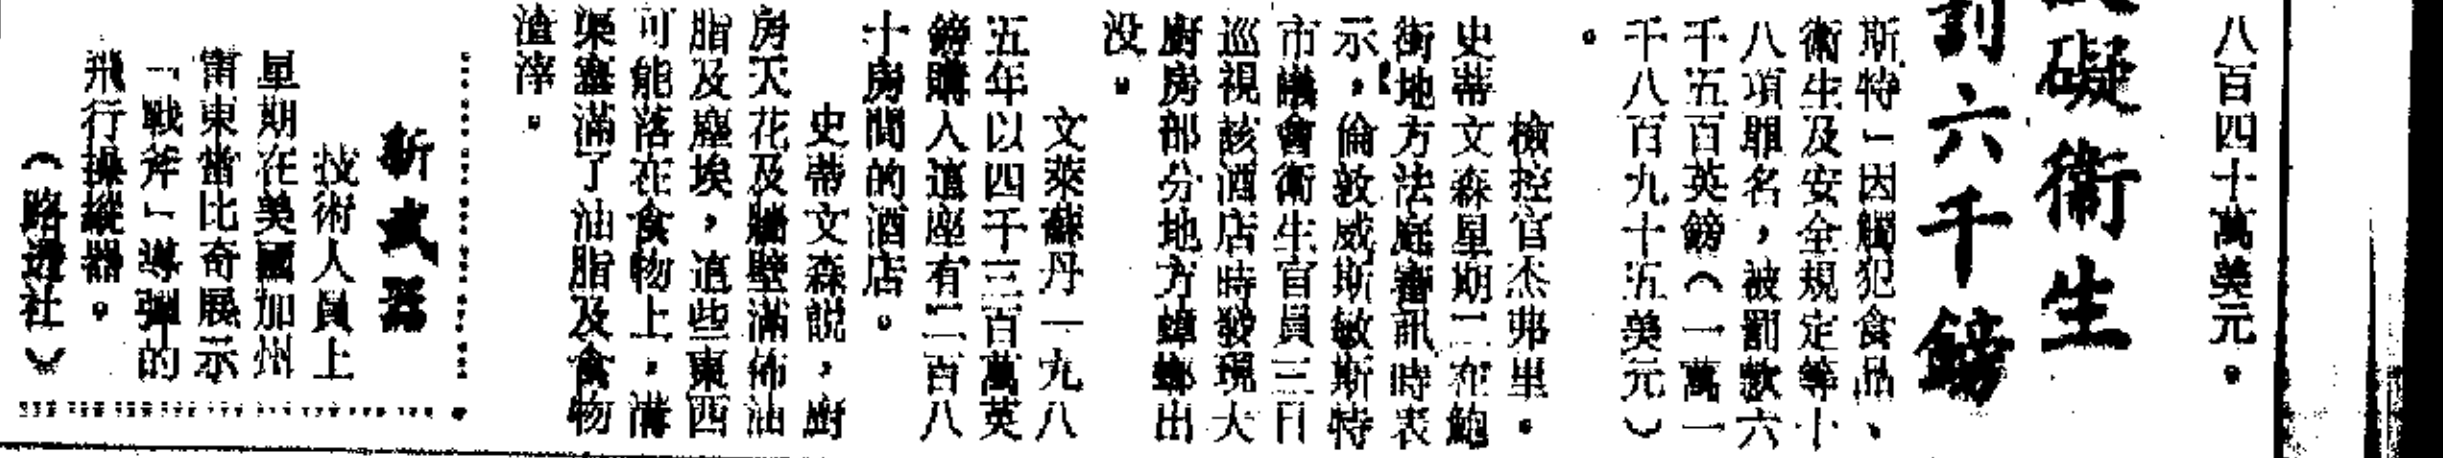 八百四十萬美元。
礙衛生
罰六千鎊
斯特」因觸犯食品、
衛生及安全規定等十
八項罪名，被罰款六
千五百英鎊（一萬一
千八百九十五美元）
。
檢控官杰弗里·
史蒂文森星期二在鮑
街地方法庭審訊時表
示，倫敦威斯敏斯特
市議會衛生官員三月
巡視該酒店時發現大
廚房部分地方蟑螂出
没。
文萊蘇丹一九八
五年以四千三百萬英
鎊購入這座有二百八
十房間的酒店。
史蒂文森説，廚
房天花及牆壁滿佈油
脂及塵埃，這些東西
可能落在食物上，溝
渠塞滿了油脂及食物
渣滓。
新武器
技術人員上
星期在美國加州
雷東當比奇展示
「戰斧」導彈的
飛行操縱器。
（路透社）